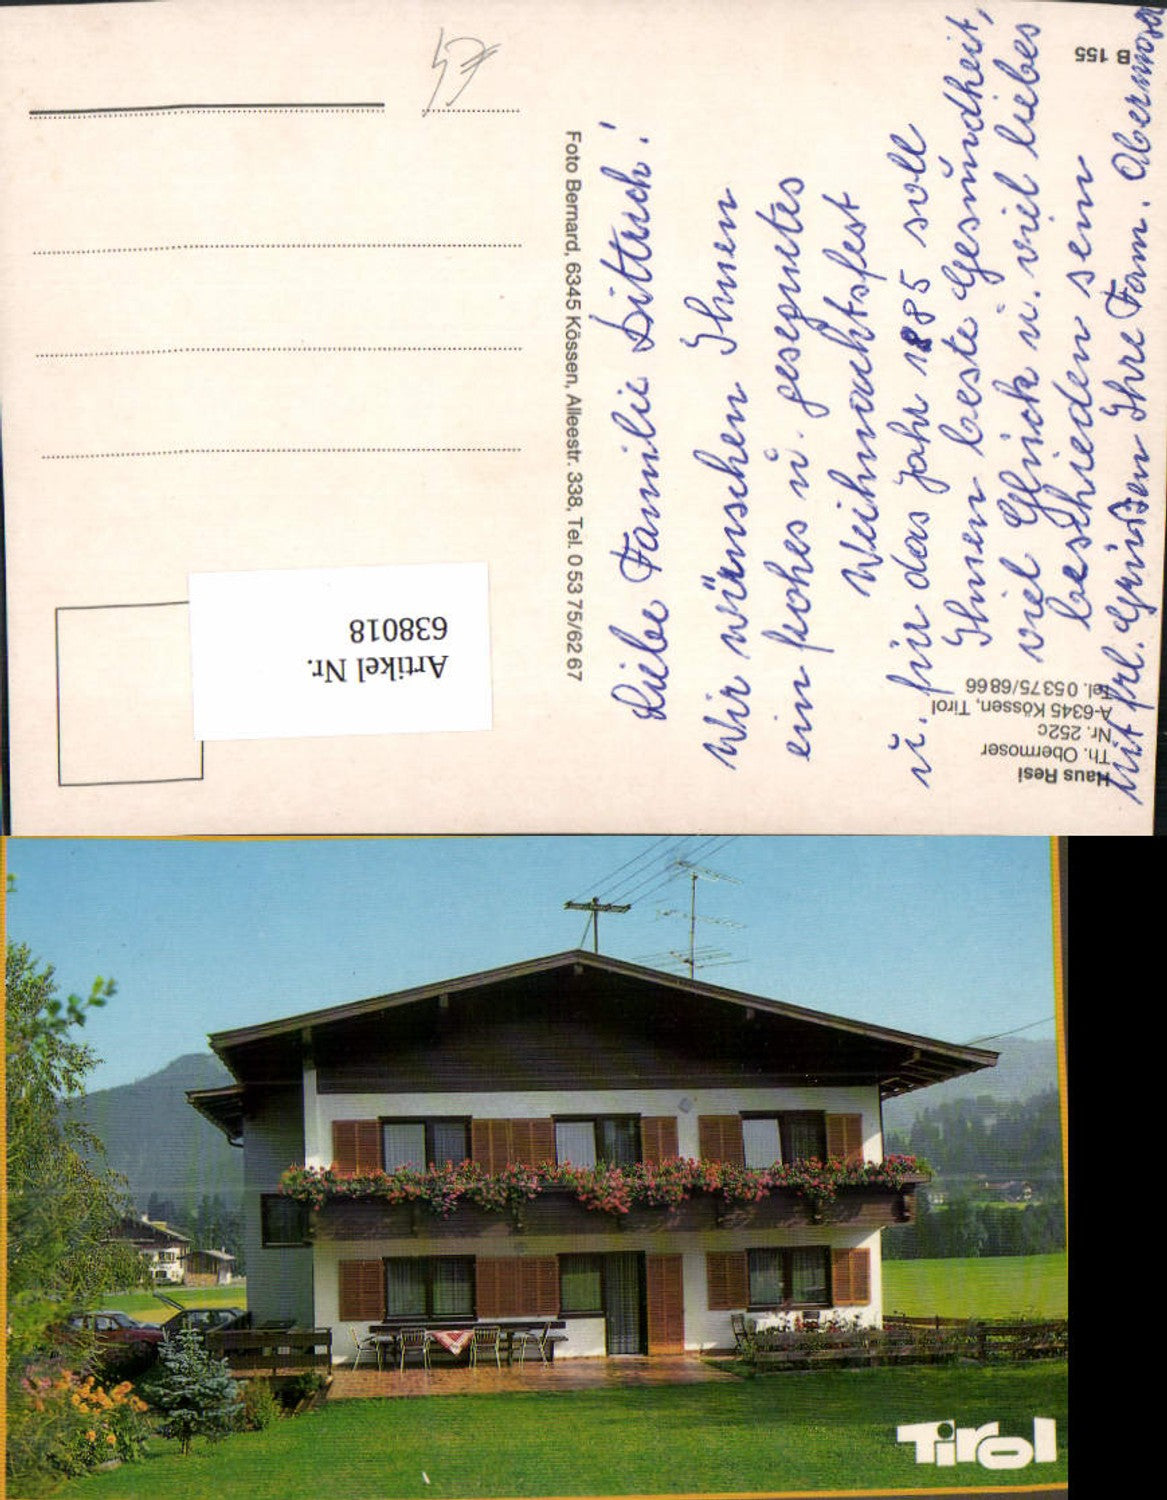 Liebe Familie Dittrich!
Wir wünschen Ihnen
ein frohes u. gesegnetes
Weihnachtsfest
u. für das Jahr 1985 soll
Ihnen beste Gesundheit,
viel Glück u. viel liebes
beschieden sein
Mit frl. Grüßen Ihre Fam. Obermoser
Haus Resi
Th. Obermoser
Nr. 252c
A-6345 Kössen, Tirol
Tel. 05375/6866
B 155
Foto Bernard, 6345 Kössen, Alleestr. 338, Tel. 0 53 75/62 67
Artikel Nr.
638018
Tirol